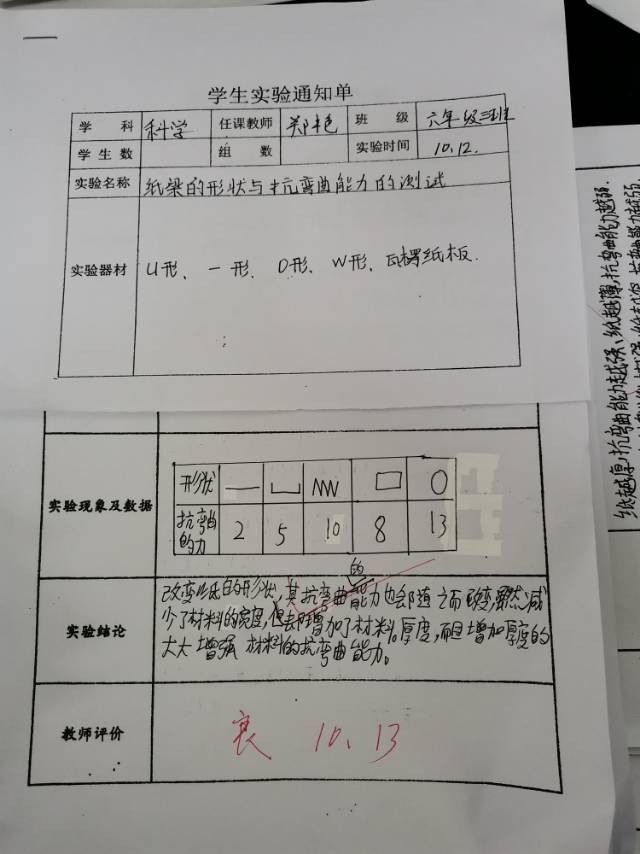 学生实验通知单
学 科 科学 任课教师 郑艳 班 级 六年级三班
学生数 组 数 实验时间 10.12.
实验名称 纸梁的形状与抗弯曲能力的测试
实验器材 U形、一形、O形、W形、瓦楞纸板.
实验现象及数据
形状
抗弯曲的力 2 5 10 8 13
的
实验结论 改变纸的形状,其抗弯曲能力也会随之而改变,虽然减
少了材料的宽度,但却增加了材料厚度,而且增加厚度的
大大增强材料的抗弯曲能力。
教师评价 良 10.13
纸越厚,抗弯曲能力越强、纸越薄,抗弯曲能力越弱.